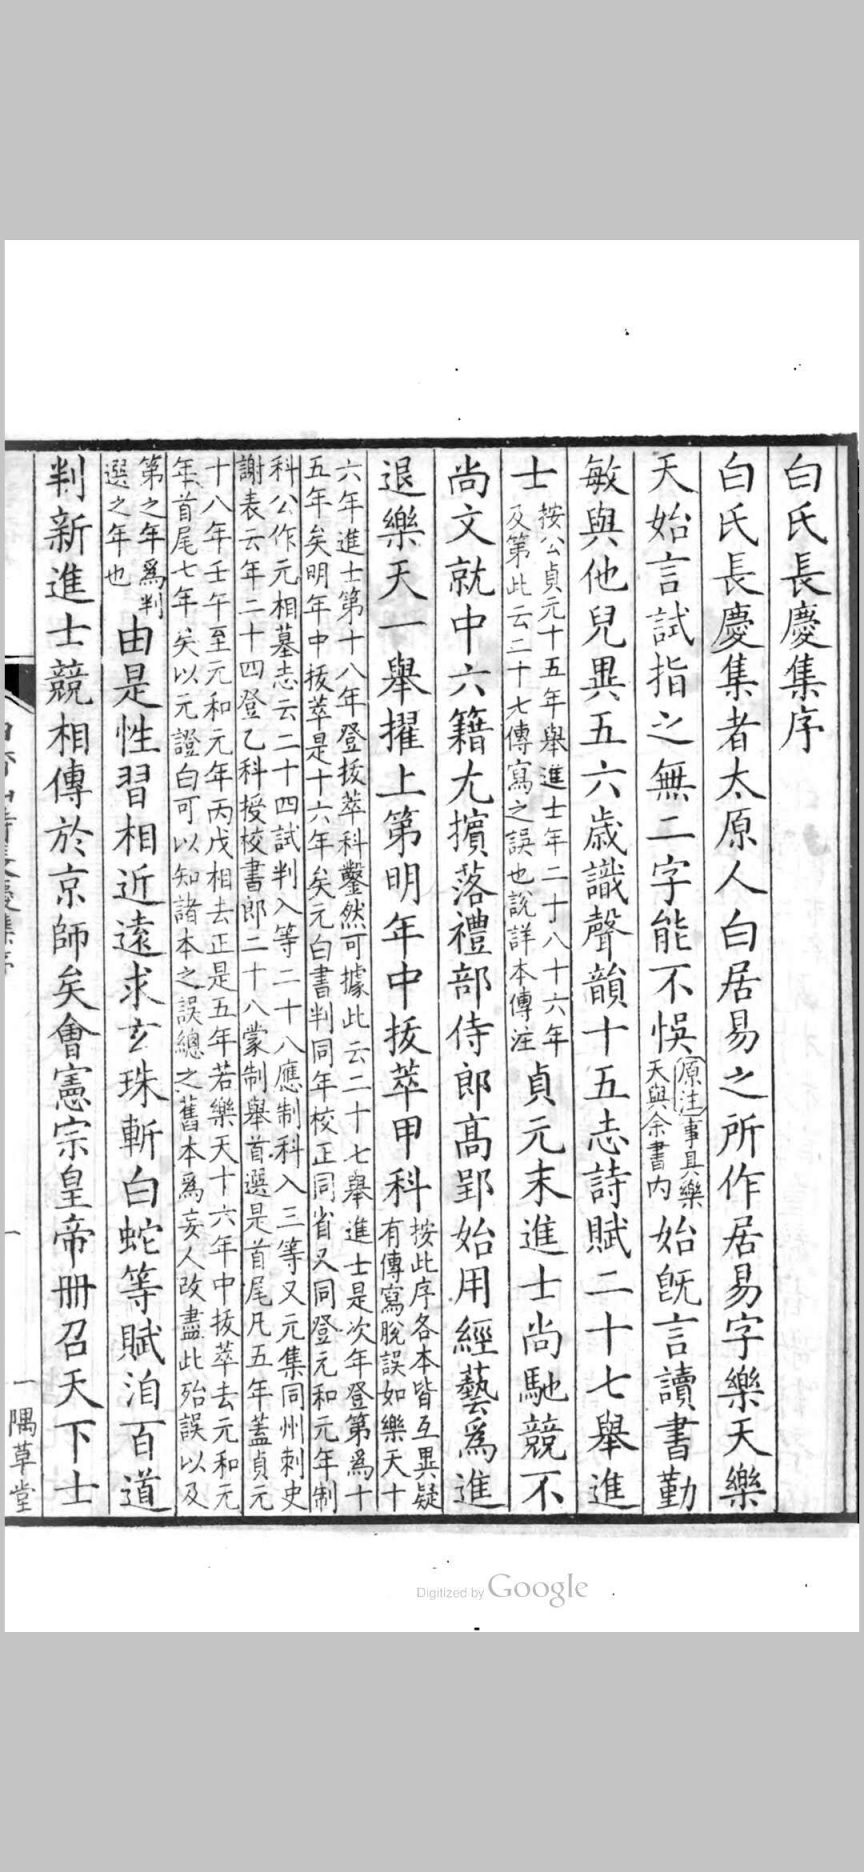 白氏長慶集序
白氏長慶集者太原人白居易之所作居易字樂天樂
天始言試指之無二字能不悞
原注事具樂
天與余書内
始旣言讀書勤
敏與他兒異五六歲識聲韻十五志詩賦二十七舉進
士
按公貞元十五年舉進士年二十八十六年
及第此云二十七傳寫之誤也說詳本傳注
貞元末進士尚馳競不
尚文就中六籍尤擯落禮部侍郎高郢始用經藝爲進
退樂天一舉擢上第明年中拔萃甲科
按此序各本皆互異疑
有傳寫脫誤如樂天十
六年進士第十八年登拔萃科鑿然可據此云二十七舉進士是次年登第爲十
五年矣明年中拔萃是十六年矣元白書判同年校正同省又同登元和元年制
科公作元相墓志云二十四試判入等二十八應制科入三等又元集同州刺史
謝表云年二十四登乙科授校書郎二十八蒙制舉首選是首尾凡五年蓋貞元
十八年壬午至元和元年丙戌相去正是五年若樂天十六年中拔萃去元和元
年首尾七年矣以元證白可以知諸本之誤總之舊本爲妄人改盡此殆誤以及
第之年爲判
選之年也
由是性習相近遠求玄珠斬白蛇等賦洎百道
判新進士競相傳於京師矣會憲宗皇帝冊召天下士
一
一隅草堂
Digitized by Google